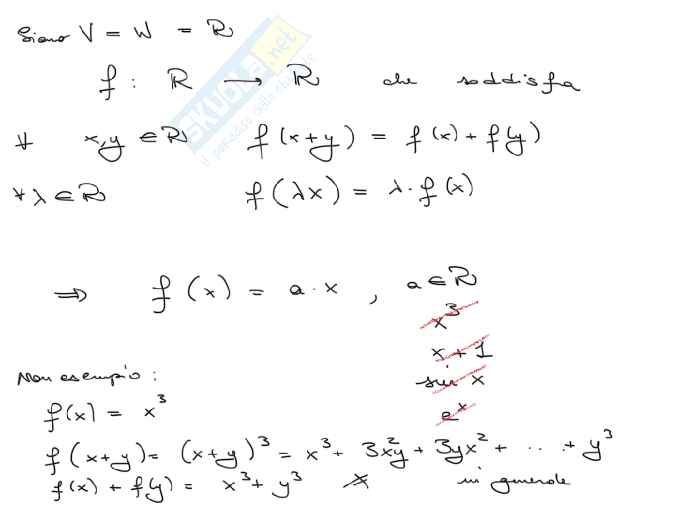 Siano V = W = ℝ
f : ℝ → ℝ che soddisfa
∀ x,y ∈ ℝ f(x+y) = f(x) + f(y)
∀ λ ∈ ℝ f(λx) = λ · f(x)
⇒ f(x) = a · x , a ∈ ℝ
x³
x + 1
sin x
eˣ
Non esempio :
f(x) = x³
f(x+y) = (x+y)³ = x³ + 3x²y + 3yx² + ... + y³
f(x) + f(y) = x³ + y³ ≠ in generale
SKUOLA.net